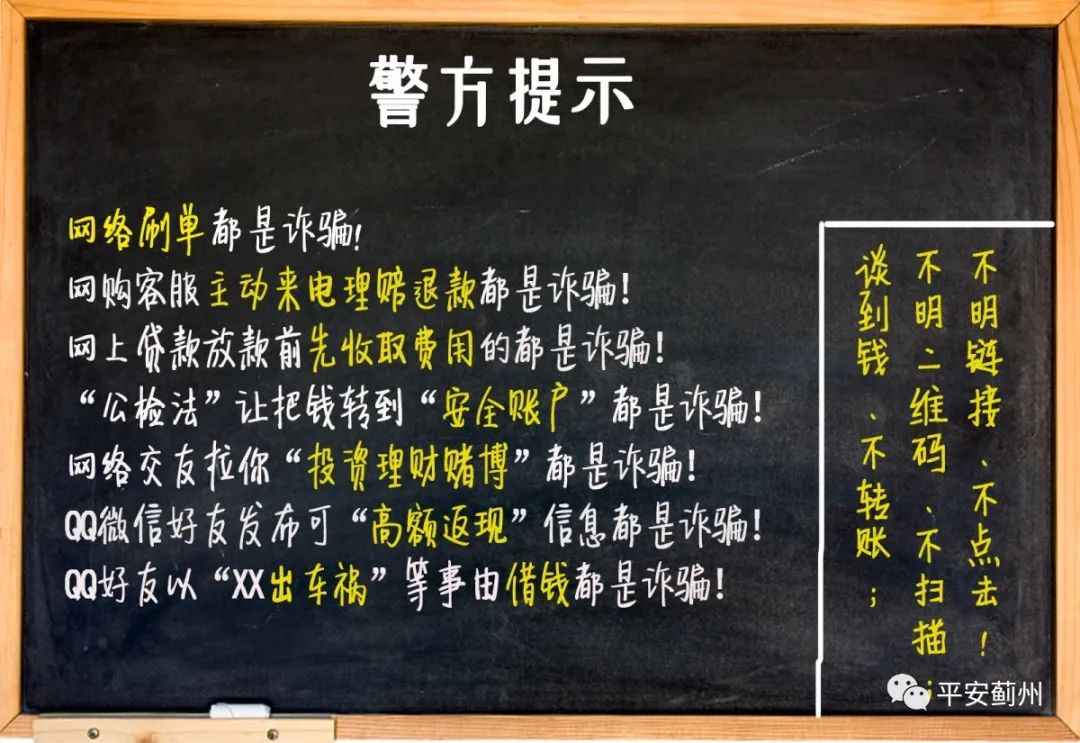 警方提示
网络刷单都是诈骗！
网购客服主动来电理赔退款都是诈骗！
网上贷款放款前先收取费用的都是诈骗！
“公检法”让把钱转到“安全账户”都是诈骗！
网络交友拉你“投资理财赌博”都是诈骗！
QQ微信好友发布可“高额返现”信息都是诈骗！
QQ好友以“XX出车祸”等事由借钱都是诈骗！
谈到钱、不转账；
不明二维码、不扫描；
不明链接、不点击！
平安蓟州